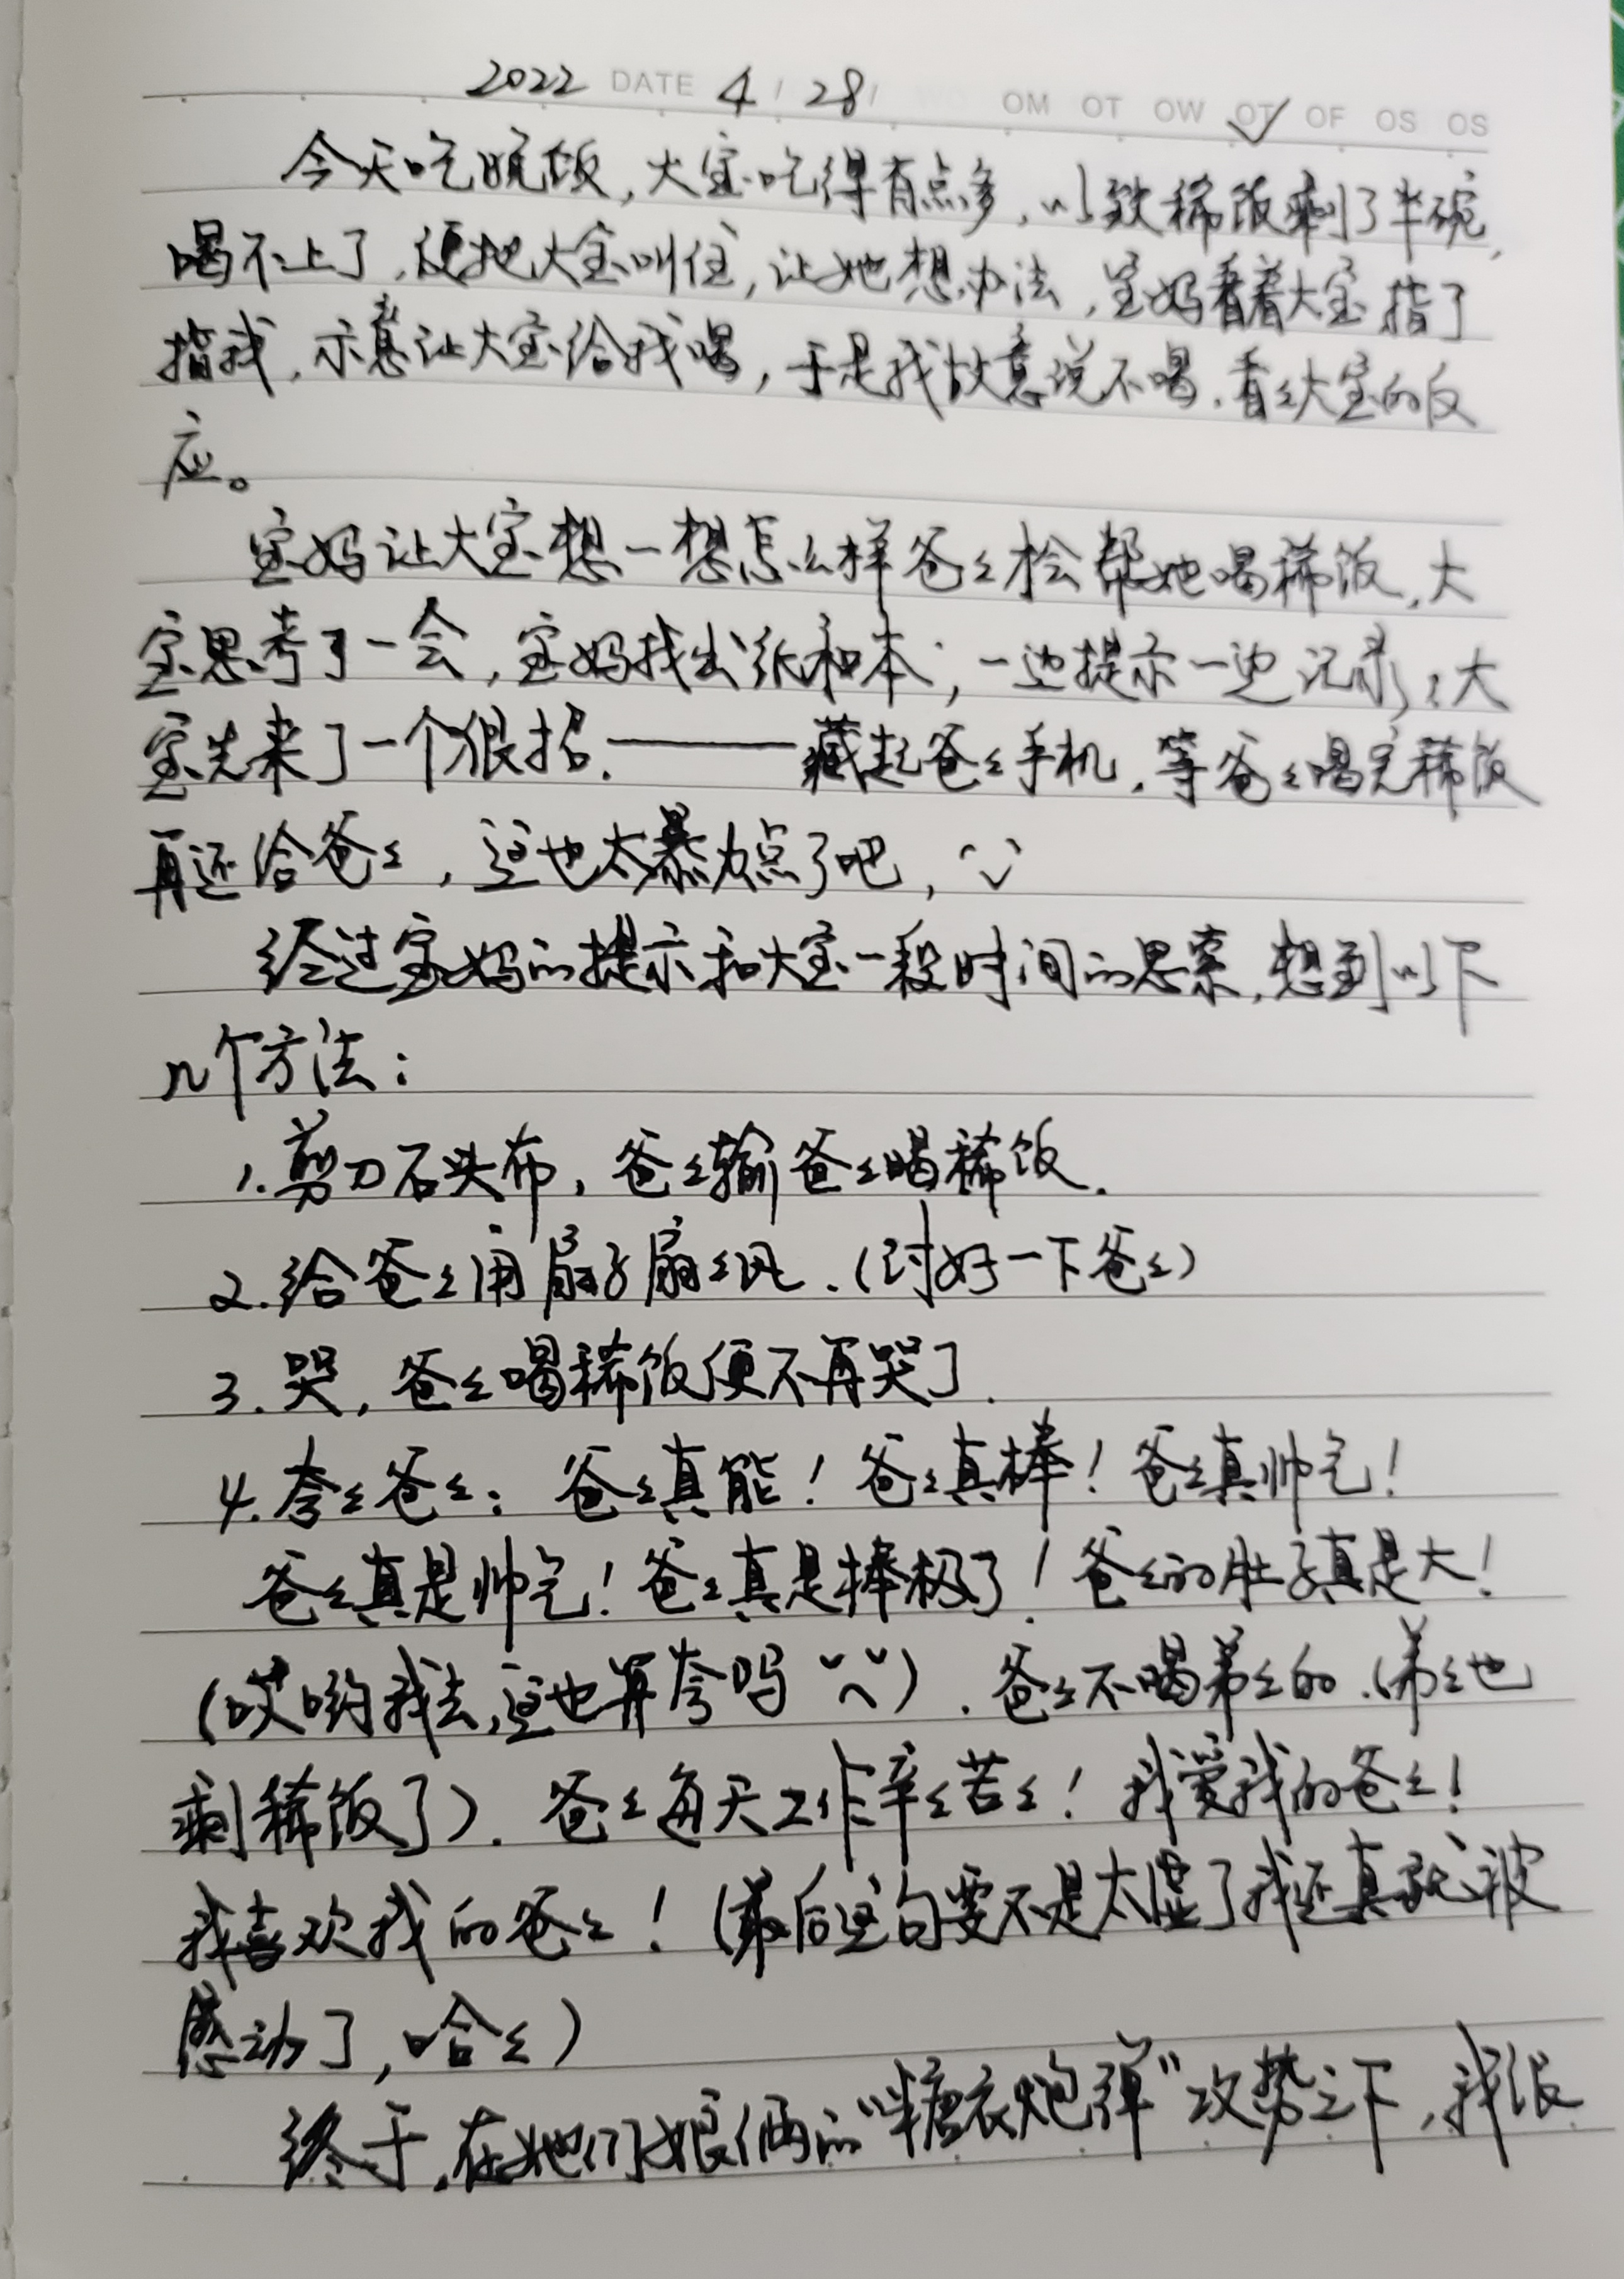 2022 DATE 4 / 28 / OM OT OW OT✓ OF OS OS
今天吃晚饭，大宝吃得有点多，以致稀饭剩了半碗，
喝不上了，便把大宝叫住，让她想办法，宝妈看着大宝指了
指我，示意让大宝给我喝，于是我故意说不喝，看々大宝的反
应。
宝妈让大宝想一想怎么样爸々才会帮她喝稀饭，大
宝思考了一会，宝妈找出纸和本，一边提示一边记录，大
宝先来了一个狠招，——藏起爸々手机，等爸々喝完稀饭
再还给爸々，这也太暴力点了吧，
经过宝妈的提示和大宝一段时间的思索，想到以下
几个方法：
1.剪刀石头布，爸々输爸々喝稀饭.
2.给爸々用扇子扇々风.（讨好一下爸々）
3.哭，爸々喝稀饭便不再哭了.
4.夸々爸々：爸々真能！爸々真棒！爸々真帅气！
爸々真是帅气！爸々真是棒极了！爸々的肚子真是大！
（哎哟我去，这也算夸吗）.爸々不喝弟々的.（弟々也
剩稀饭了）.爸々每天工作辛々苦々！我爱我的爸々！
我喜欢我的爸々！（最后这句要不是太虚了我还真就被
感动了，哈々）
终于，在她们娘俩的“糖衣炮弹”攻势之下，我很